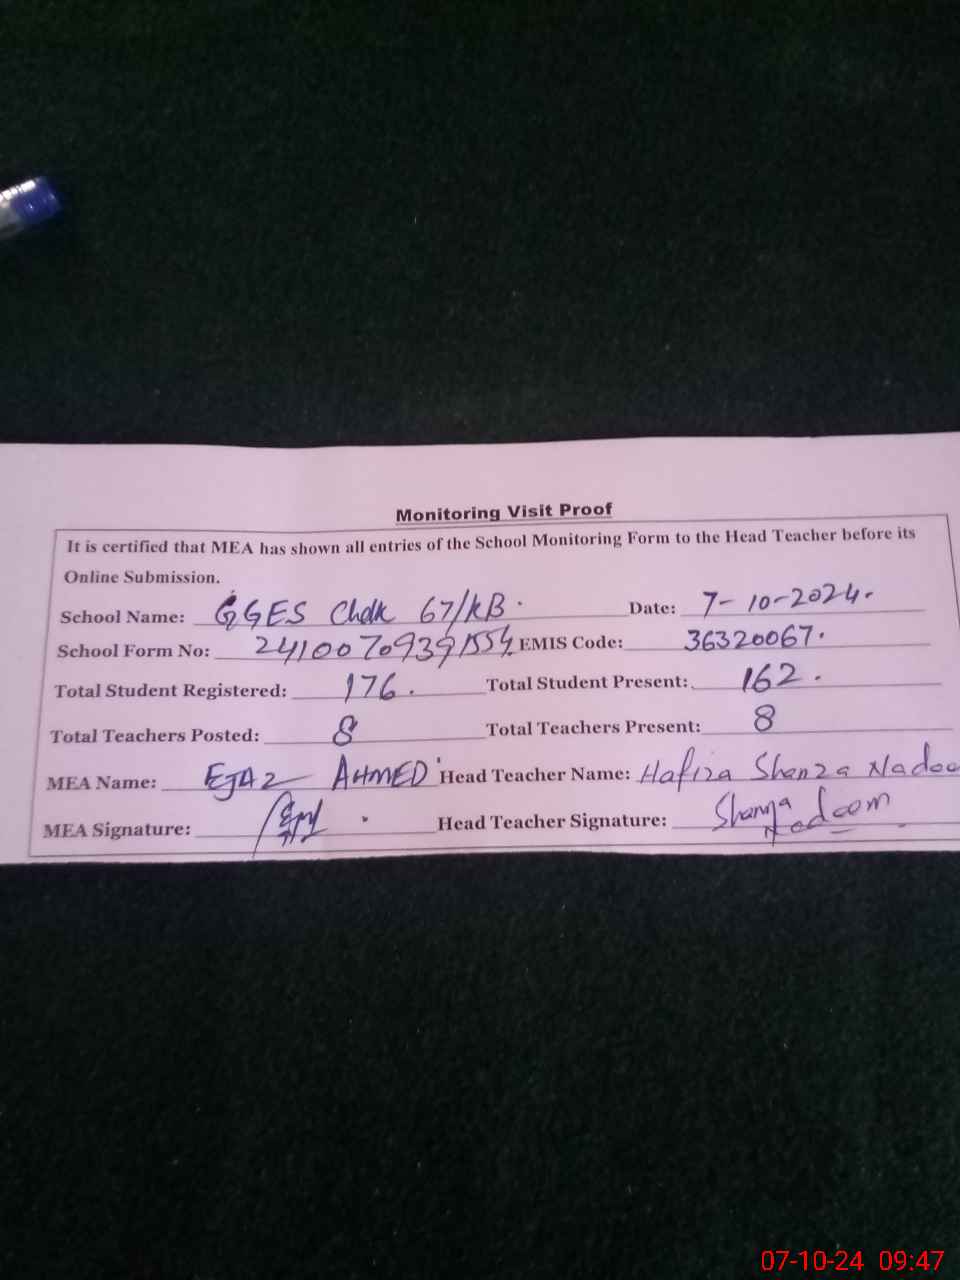 Monitoring Visit Proof
It is certified that MEA has shown all entries of the School Monitoring Form to the Head Teacher before its
Online Submission.
School Name: GGES Chak 67/KB. Date: 7-10-2024.
School Form No: 24100709391554 EMIS Code: 36320067.
Total Student Registered: 176. Total Student Present: 162.
Total Teachers Posted: 8 Total Teachers Present: 8
MEA Name: EJAZ AHMED Head Teacher Name: Hafiza Shanza Nadee
MEA Signature: Head Teacher Signature: Shanza Nadeem
07-10-24 09:47